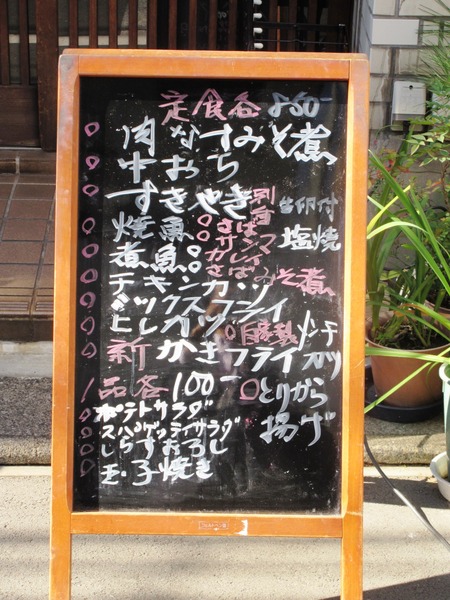 定食各 850-
肉なすみそ煮
中おち
すきやき 別盛 生卵付
焼魚 。さば 。サンマ 塩焼
煮魚 。カレイ 。さばみそ煮
チキンカツ
ミックスフライ
ヒレカツ 。自家製 メンチカツ
新 かきフライ
1品各 100- 。とりから揚げ
ポテトサラダ
スパゲッティサラダ
しらすおろし
玉子焼き